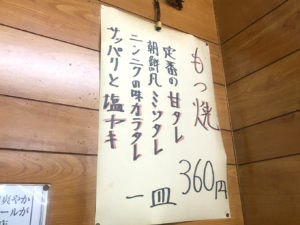 もつ焼
定番の甘タレ
朝鮮風ミソタレ
ニンニクの味オラタレ
サッパリと塩ヤキ
一皿 360円
爽やか
ールが